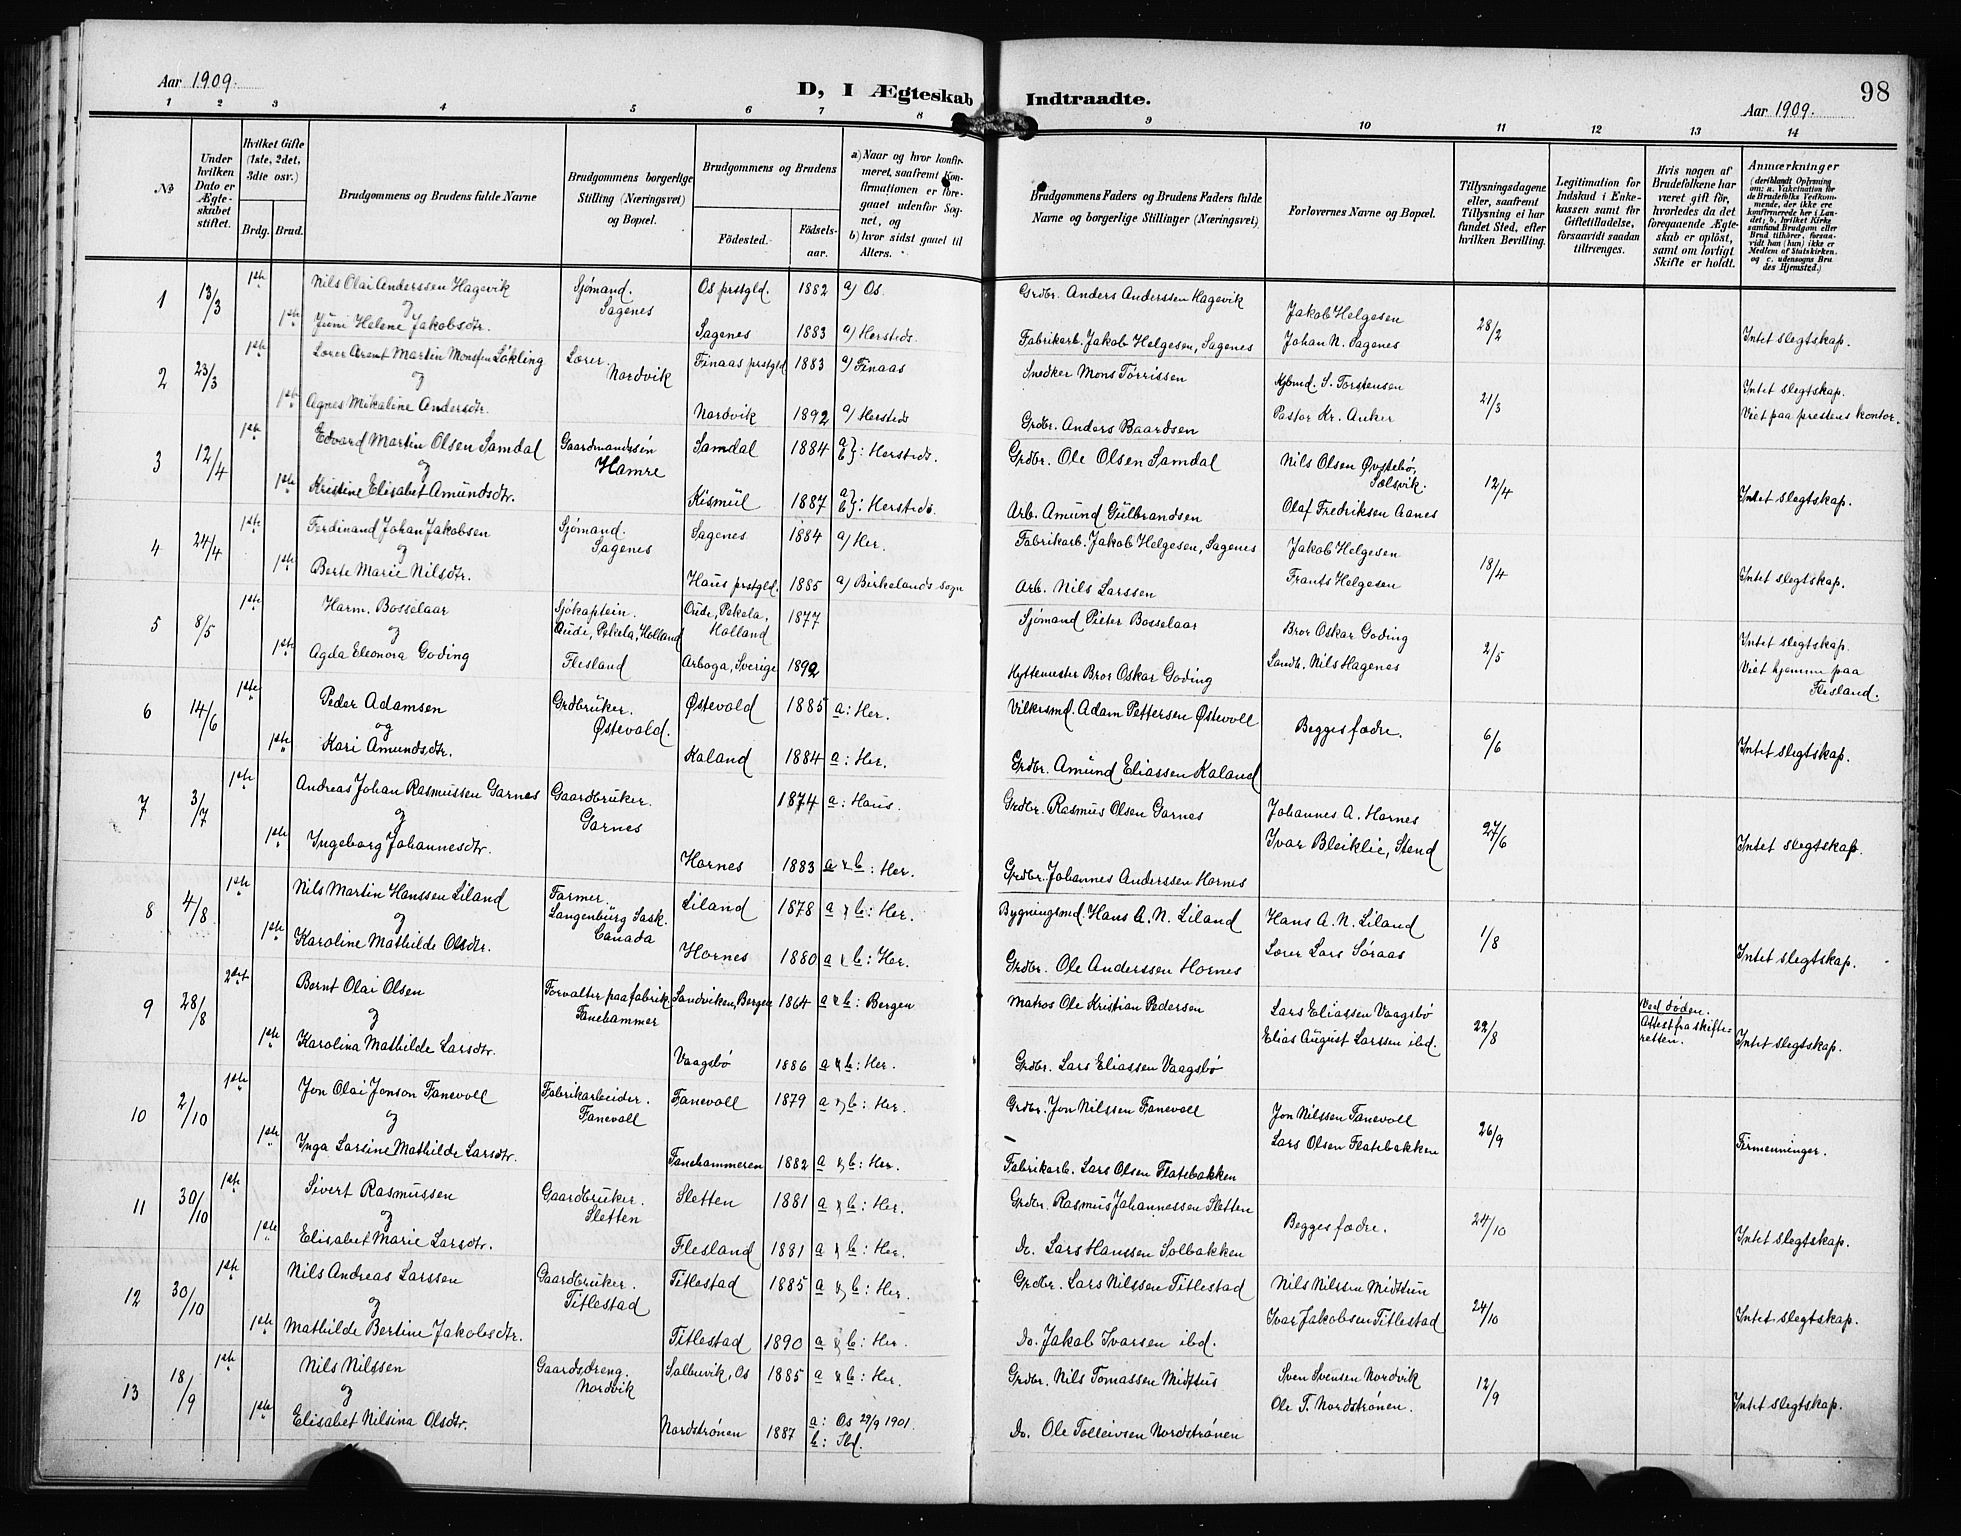 Aar 1909.
D, I Ægteskab Indtraadte.
98
Aar 1909.
1 2 3 4 5 6 7 8 9 10 11 12 13 14
No
Under hvilken Dato er Ægteskabet stiftet.
Hvilket Gifte (1ste, 2det, 3die osv.)
Brdg. Brud.
Brudgommens og Brudens fulde Navne
Brudgommens borgerlige Stilling (Næringsvei) og Bopæl.
Brudgommens og Brudens
Fødested.
Fødselsaar.
a) Naar og hvor konfirmeret, saafremt Konfirmationen er foregaaet udenfor Sognet, og
b) hvor sidst gaaet til Alters.
Brudgommens Faders og Brudens Faders fulde Navne og borgerlige Stillinger (Næringsvei)
Forlovernes Navne og Bopæl.
Tillysningsdagene eller, saafremt Tillysning ei har fundet Sted, efter hvilken Bevilling.
Legitimation for Indskud i Enkekassen samt for Giftetilladelse, forsaavidt saadan tiltrænges.
Hvis nogen af Brudefolkene har været gift før, hvorledes da det foregaaende Ægteskab er opløst, samt om lovligt Skifte er holdt.
Anmærkninger
(deriblandt Oplysning om: a. Vakcination for de Brudefolks Vedkommende, der ikke ere konfirmerede her i Landet; b, hvilket Kirkesamfund Brudgom eller Brud tilhører, forsaavidt han (hun) ikke er Medlem af Statskirken, og c. udensogns Brudes Hjemsted.)
1 13/3 1ste Nils Olai Anderssen Hagevik Sjømand. Sagenes Os prstgld. 1882 a) Os. Grdbr. Anders Anderssen Hagevik Jakob Helgesen 28/2
og
1ste Juni Helene Jakobsdtr. Sagenes 1883 a) Hersteds. Fabrikarb. Jakob Helgesen, Sagenes Johan N. Sagenes Intet slegtskap.
2 23/3 1ste Lærer Arent Martin Monssen Løkling Lærer Nordvik Finaas prstgld 1883 a) Finaas Snedker Mons Tørrissen Kjbmd. S. Torstensen 21/3 Intet slegtskap.
og
1ste Agnes Mikaline Andersdtr. Nordvik 1892 a) Hersteds Grdbr. Anders Baardsen Pastor Kr. Anker Viet paa prestens kontor.
3 12/4 1ste Edvard Martin Olsen Samdal Gaardmandssøn Hamre Samdal 1884 a b}: Hersteds. Grdbr. Ole Olsen Samdal Nils Olsen Øvstebø, Sælsvik. 12/4
og
1ste Kristine Elisabet Amundsdtr. Kismul 1887 a b}: Hersteds. Arb. Amund Gulbrandsen Olaf Fredriksen Aanes Intet slegtskap.
4 24/4 1ste Ferdinand Johan Jakobsen Sjømand. Sagenes Sagenes 1884 a) Her. Fabrikarb. Jakob Helgesen, Sagenes Jakob Helgesen 18/4
og
1ste Berte Marie Nilsdtr. Haus prstgld. 1885 a) Birkelands sogn Arb. Nils Larssen Frants Helgesen Intet slegtskap.
5 8/5 1ste Harm. Bosselaar Sjøkaptein. Oude, Pekela, Holland Oude, Pekela, Holland 1877 Sjømand Pieter Bosselaar Bror Oskar Goding 2/5 Intet slegtskap.
og
1ste Agda Eleonora Goding Flesland Arboga, Sverige 1892 Hyttemester Bror Oskar Goding Landh. Nils Hagenes Viet hjemme paa Flesland.
6 14/6 1ste Peder Adamsen Grdbruker. Østevold. Østevold 1885 a: Her. Vilkersmd. Adam Pettersen Østevoll Begges fædre. 6/6
og
1ste Kari Amundsdtr. Kaland 1884 a: Her. Grdbr. Amund Eliassen Kaland Intet slegtskap.
7 3/7 1ste Andreas Johan Rasmussen Garnes Gaardbruker. Garnes 1874 a: Haus. Grdbr. Rasmus Olsen Garnes Johannes A. Hornes 27/6
og
1ste Ingeborg Johannesdtr. Hornes 1883 a & b: Her. Grdbr. Johannes Anderssen Hornes Ivar Bleiklie, Stend Intet slegtskap.
8 4/8 1ste Nils Martin Hanssen Liland Farmer. Langenburg Sask. Canada Liland 1878 a & b: Her. Bygningsmd. Hans A. N. Liland Hans A. N. Liland 1/8
og
1ste Karoline Mathilde Olsdtr. Hornes 1880 a & b: Her. Grdbr. Ole Anderssen Hornes Lærer Lars Søraas Intet slegtskap.
9 28/8 2det Bernt Olai Olsen Forvalter paa fabrik Fanehammer Sandviken, Bergen 1864 a & b: Bergen Matros Ole Kristian Pedersen Lars Eliassen Vaagsbø 22/8 Ved døden. Attest fra skifteretten.
og
1ste Karolina Mathilde Larsdtr. Vaagsbø 1886 a & b: Her. Grdbr. Lars Eliassen Vaagsbø Elias August Larssen ibd. Intet slegtskap.
10 2/10 1ste Jon Olai Jonson Fanevoll Fabrikarbeider. Fanevoll Fanevoll 1879 a & b: Her. Grdbr. Jon Nilssen Fanevoll Jon Nilssen Fanevoll 26/9
og
1ste Inga Larsine Mathilde Larsdtr. Fanehammeren 1882 a & b: Her. Fabrikarb. Lars Olsen Flatebakken Lars Olsen Flatebakken Firmenninger.
11 30/10 1ste Sivert Rasmussen Gaardbruker. Sletten Sletten 1881 a & b: Her. Grdbr. Rasmus Johannessen Sletten Begges fædre. 24/10
og
1ste Elisabet Marie Larsdtr. Flesland 1881 a & b: Her. Do. Lars Hanssen Solbakken Intet slegtskap.
12 30/10 1ste Nils Andreas Larssen Gaardbruker. Titlestad Titlestad 1885 a & b: Her. Grdbr. Lars Nilssen Titlestad Nils Nilssen Midttun 24/10
og
1ste Mathilde Bertine Jakobsdtr. Titlestad 1890 a & b: Her. Do. Jakob Ivarsen ibd. Ivar Jakobsen Titlestad Intet slegtskap.
13 18/9 1ste Nils Nilssen Gaardsdreng. Nordvik Salbuvik, Os 1885 a & b: Her. Grdbr. Nils Tomassen Midttus Sven Svensen Nordvik 12/9
og
1ste Elisabet Nilsina Olsdtr. Nordstrønen 1887 a: Os 29/9 1901. b: Ibd. Do. Ole Tolleivsen Nordstrønen Ole T. Nordstrønen. Intet slegtskap.